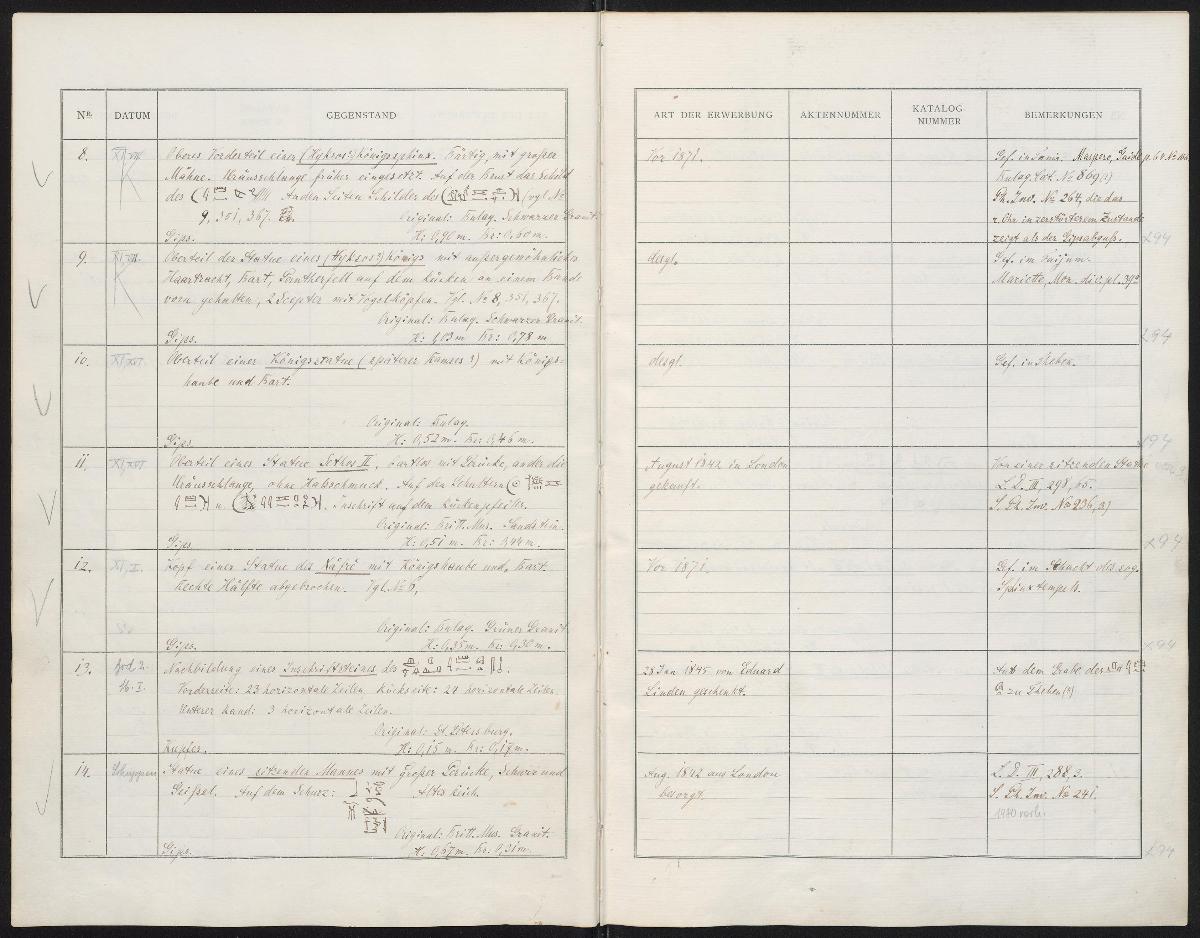 Nº. DATUM GEGENSTAND ART DER ERWERBUNG AKTENNUMMER KATALOG-NUMMER BEMERKUNGEN
8. Oberes Vorderteil einer (Hyksos?) Königssphinx. Bärtig, mit großer
Mähne. Uräusschlange früher eingesetzt. Auf der Brust das Schild
des An den Seiten Schilder des (vgl. Nº
9, 351, 367. Original: Bulaq. Schwarzer Granit.
Gips. H: 0,90 m. Br: 0,60 m.
Vor 1871.
Gef. in Tanis. Maspero, Guide p. 64. Nº
Bulaq. Kat. Nº 869 (?)
Ph. Inv. Nº 264, die das
r. Ohr in zerstörterem Zustand
zeigt als der Gipsabguß.
294
9. Oberteil der Statue eines (Hyksos?) Königs mit außergewöhnlicher
Haartracht, Bart, Pantherfell auf dem Rücken an einem Bande
vorn gehalten, 2 Scepter mit Vogelköpfen. Vgl. Nº 8, 351, 367.
Original: Bulaq. Schwarzer Granit.
Gips. H: 1,03 m Br: 0,78 m
desgl.
Gef. im Faijum.
Mariette, Mon. div. pl. 39
294
10. XI, XVI Oberteil einer Königsstatue (späterer Ramses?) mit Königs-
haube und Bart.
Original: Bulaq.
Gips. H: 0,52 m. Br: 0,46 m.
desgl.
Gef. in Theben.
294
11. XI, XVI Oberteil einer Statue Sethos II, bartlos mit Perücke, an der die
Uräusschlange, ohne Halsschmuck. Auf den Schultern
u. Inschrift auf dem Rückenpfeiler.
Original: Britt. Mus. Sandstein.
Gips. H: 0,51 m. Br: 0,44 m.
August 1842 in London
gekauft.
Von einer sitzenden Statue
L. D. III, 298,
S. Ph. Inv. Nº 236,
294
12. XI, II. Kopf einer Statue des Xäfrê mit Königshaube und Bart.
Rechte Hälfte abgebrochen. Vgl. Nº 6.
Original: Bulaq. Grüner Granit
Gips. H: 0,35 m. Br: 0,30 m.
Vor 1871.
Gef. im Schacht des sog.
Sphinxtempels.
294
13. Nachbildung eines Inschriftsteines des
Vorderseite: 23 horizontale Zeilen. Rückseite: 24 horizontale Zeilen.
Unterer Rand: 3 horizontale Zeilen.
Original: St. Petersburg.
Kupfer. H: 0,15 m. Br: 0,17 m.
28 Jan 1845 von Eduard
Linden geschenkt.
Aus dem Grabe der
zu Theben (?)
14. Schuppen Statue eines sitzenden Mannes mit großer Perücke, Schurz und
Geißel. Auf dem Schurz: Altes Reich.
Original: Britt. Mus. Granit.
Gips. H: 0,67 m. Br: 0,31 m.
Aug. 1842 aus London
besorgt.
L. D. III, 288, 3.
S. Ph. Inv. Nº 241.
294